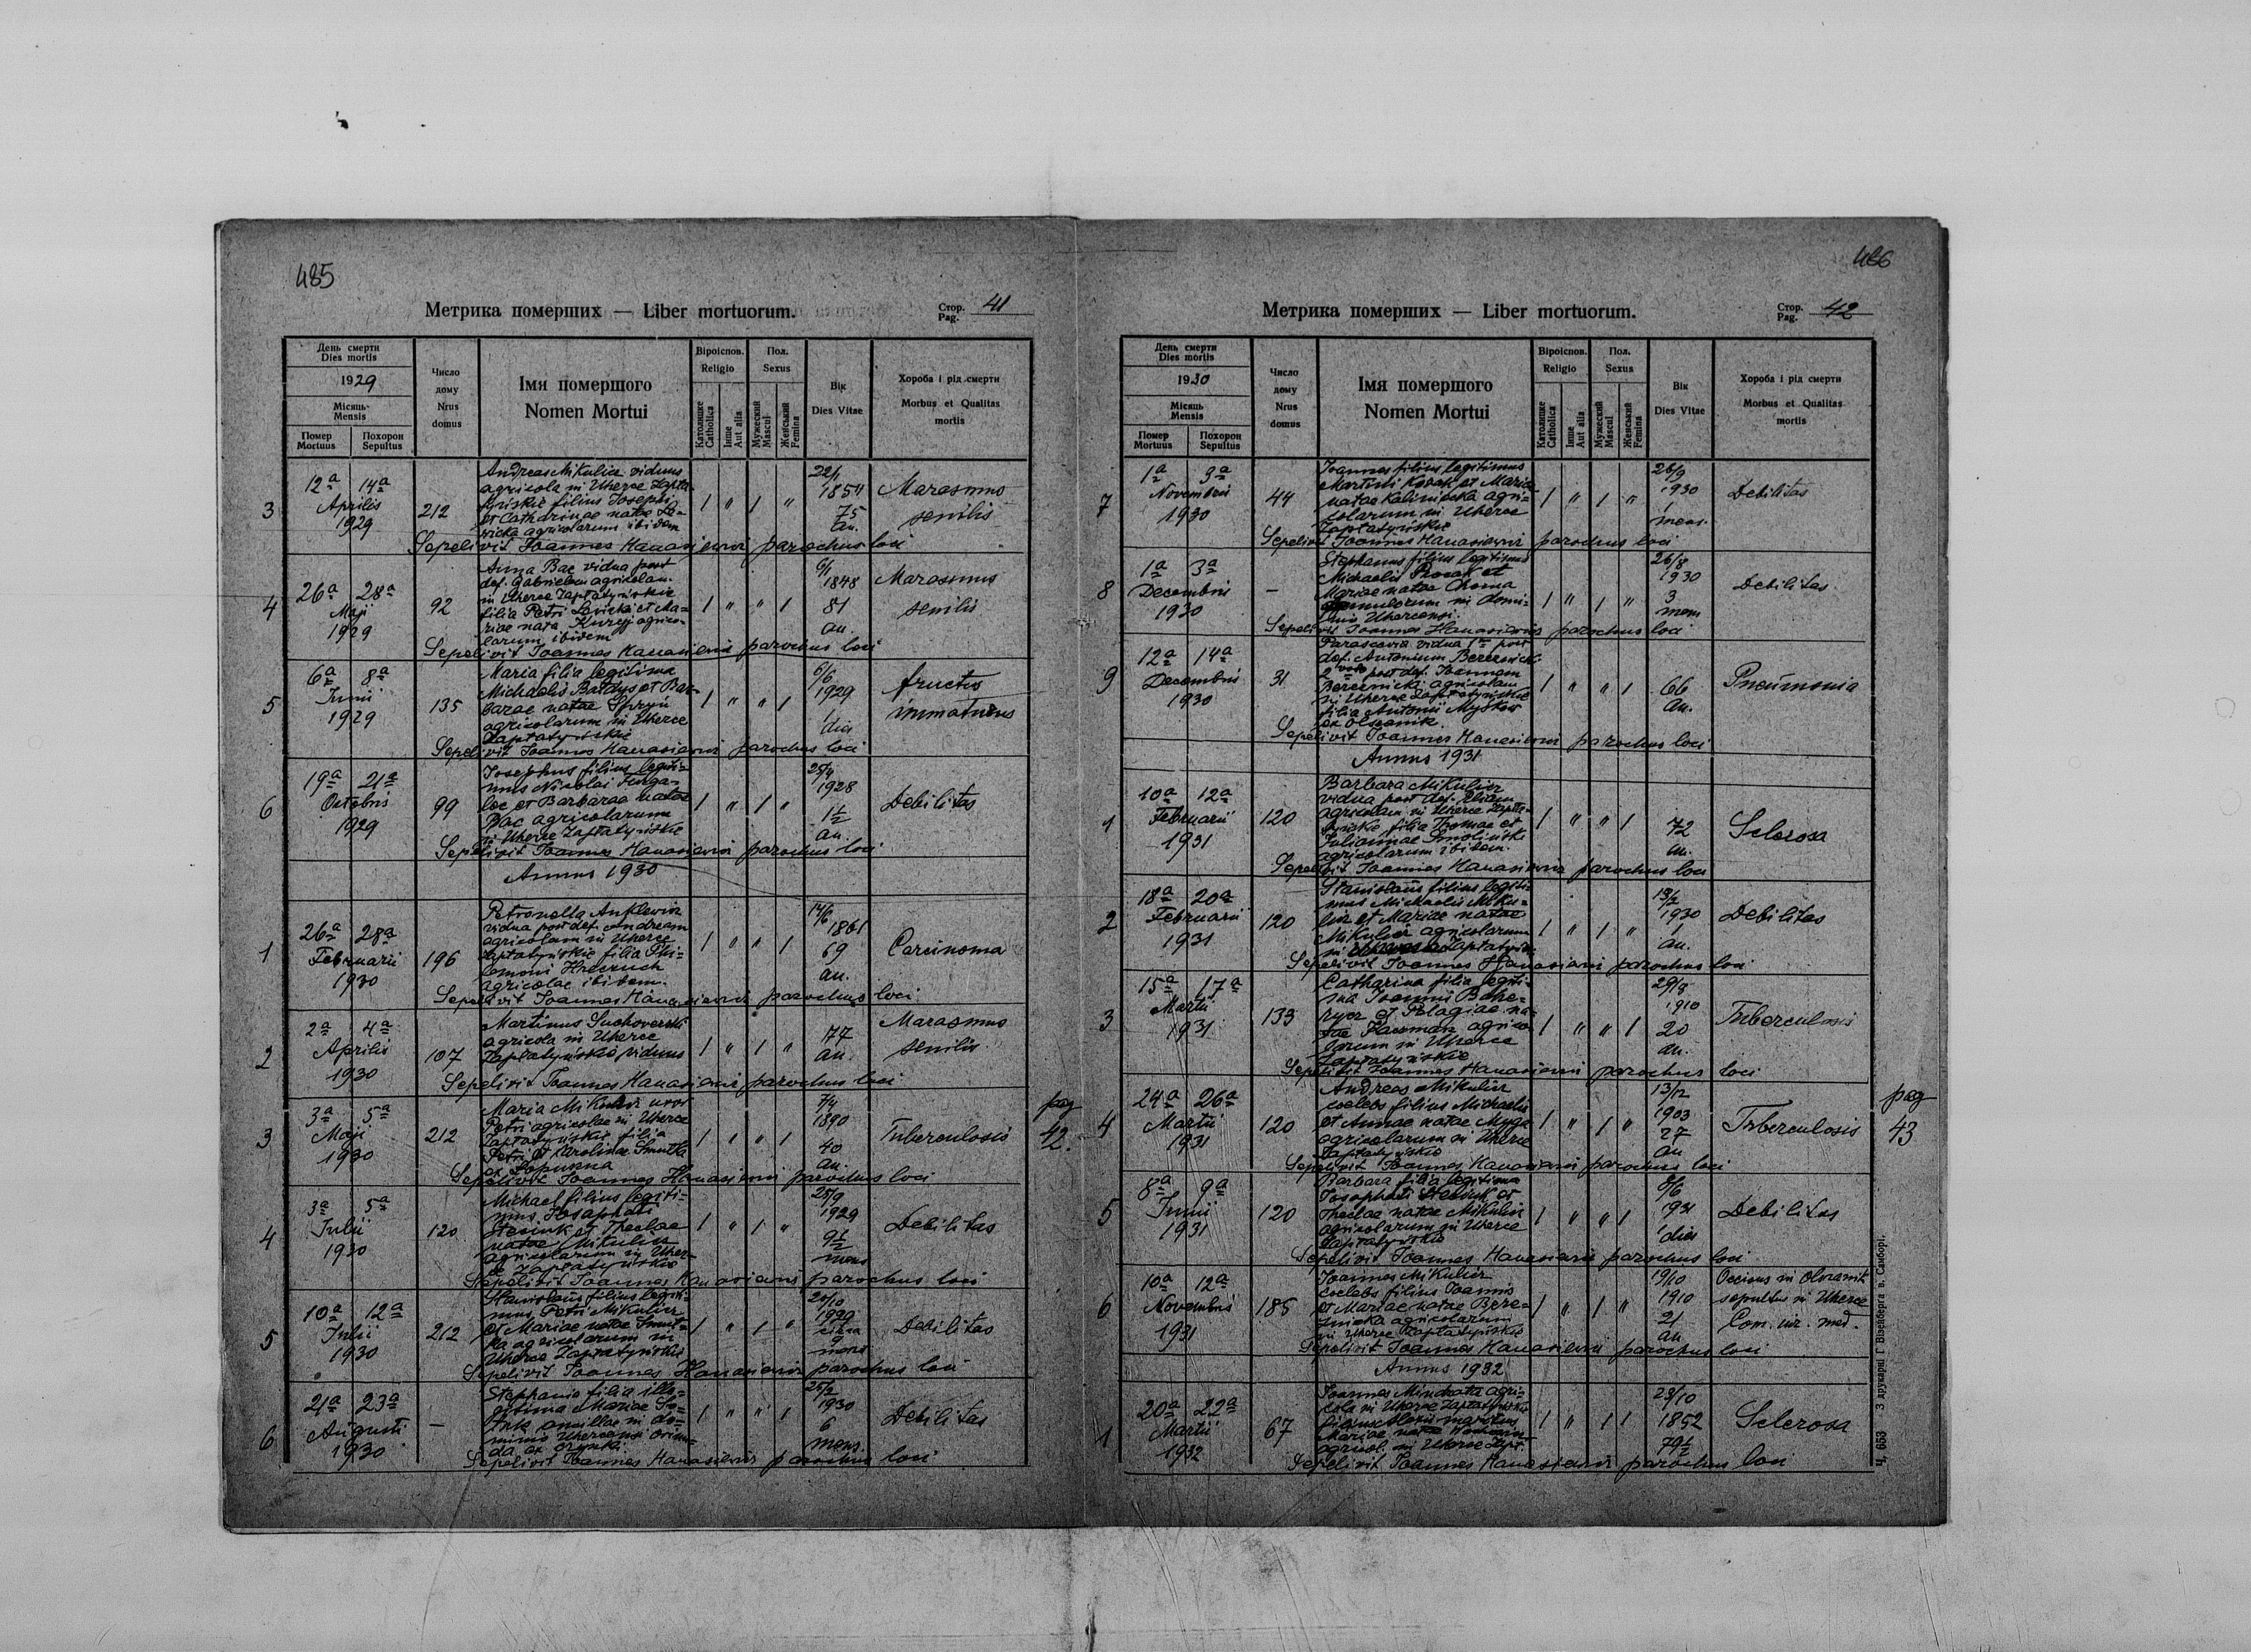 485
Метрика померших — Liber mortuorum.
Стор. Pag. 41
День смерти
Dies mortis
1929
Місяць
Mensis
Помер
Mortuus
Похорон
Sepultus
Число
дому
Nrus
domus
Імя помершого
Nomen Mortui
Віроіспов.
Religio
Католицке
Catholica
Інше
Aut alia
Пол.
Sexus
Мужеский
Mascul
Женський
Femina
Вік
Dies Vitae
Хороба і рід смерти
Morbus et Qualitas
mortis
3
12a 14a
Aprilis
1929
212
Andreas Mikulicz viduus
agricola in Uherce Zapła-
tyńskie filius Josephi
et Catharinae natae
agricolarum ibidem
1 " 1 "
22/1
1854
75
an.
Marasmus
senilis
Sepelivit Joannes Hanasiewicz parochus loci
4
26a 28a
Maji
1929
92
Anna Bac vidua post
def. Gabrielem agricolam
in Uherce Zapłatyńskie
filia Petri et Ma-
riae nata agrico-
larum ibidem
1 " " 1
6/1
1848
81
an.
Marasmus
senilis
Sepelivit Joannes Hanasiewicz parochus loci
5
6a 8a
Junii
1929
135
Maria filia legitima
Michaelis Bardys et Bar-
barae natae
agricolarum in Uherce
Zapłatyńskie
1 " " 1
6/6
1929
1
dies
fructus
immaturus
Sepelivit Joannes Hanasiewicz parochus loci
6
19a 21a
Octobris
1929
99
Josephus filius legiti-
mus Nicolai
et Barbarae natae
Bac agricolarum
in Uherce Zapłatyńskie
1 " 1 "
25/4
1928
1 1/2
an.
Debilitas
Sepelivit Joannes Hanasiewicz parochus loci
Annus 1930
1
26a 28a
Februarii
1930
196
Petronella Anklewicz
vidua post def. Andream
agricolam in Uherce
Zapłatyńskie filia Phi-
lemoni
agricolae ibidem.
1 " " 1
14/6
1861
69
an.
Carcinoma
Sepelivit Joannes Hanasiewicz parochus loci
2
2a 4a
Aprilis
1930
107
Martinus Suchowerski
agricola in Uherce
Zapłatyńskie viduus
1 " 1 "
77
an.
Marasmus
senilis
Sepelivit Joannes Hanasiewicz parochus loci
3
3a 5a
Maji
1930
212
Maria Mikulicz uxor
Petri agricolae in Uherce
Zapłatyńskie filia
Petri et Carolinae Smutka
ex Łopuszna
1 " " 1
7/4
1890
40
an.
Tuberculosis
Sepelivit Joannes Hanasiewicz parochus loci
pag
42.
4
3a 5a
Julii
1930
120
Michael filius legiti-
mus Josaphati
Stesiuk et Theclae
natae Mikulicz
agricolarum in Uher-
ce Zapłatyńskie
1 " 1 "
25/9
1929
9 1/2
mens
Debilitas
Sepelivit Joannes Hanasiewicz parochus loci
5
10a 12a
Julii
1930
212
Stanislaus filius legiti-
mus Petri Mikulicz
et Mariae natae Smut-
ka agricolarum in
Uherce Zapłatyńskie
1 " 1 "
20/10
1929
circa
9
mens
Debilitas
Sepelivit Joannes Hanasiewicz parochus loci
6
21a 23a
Augusti
1930
—
Stephania filia ille-
gitima Mariae
ancillae in do-
minio Uhercensi oriun-
da ex
1 " " 1
25/2
1930
6
mens.
Debilitas
Sepelivit Joannes Hanasiewicz parochus loci
486
Метрика померших — Liber mortuorum.
Стор. Pag. 42
День смерти
Dies mortis
1930
Місяць
Mensis
Помер
Mortuus
Похорон
Sepultus
Число
дому
Nrus
domus
Імя помершого
Nomen Mortui
Віроіспов.
Religio
Католицке
Catholica
Інше
Aut alia
Пол.
Sexus
Мужеский
Mascul
Женський
Femina
Вік
Dies Vitae
Хороба і рід смерти
Morbus et Qualitas
mortis
7
1a 3a
Novembris
1930
44
Joannes filius legitimus
Martini et Maria
natae Kalinicka agri-
colarum in Uherce
Zapłatyńskie
1 " 1 "
26/9
1930
1
mens.
Debilitas
Sepelivit Joannes Hanasiewicz parochus loci
8
1a 3a
Decembris
1930
—
Stephanus filius legitimus
Michaelis et
Mariae natae Choma
famulorum in domi-
nio Uhercensi.
1 " 1 "
26/8
1930
3
mens
Debilitas
Sepelivit Joannes Hanasiewicz parochus loci
9
12a 14a
Decembris
1930
31
Parascevia vidua 1o post
def. Antonium Bereźnicki
2 voto post def. Joannem
Bereźnicki agricolam
in Uherce Zapłatyńskie
filia Antonii
ex Olszanik.
1 " " 1
66
an.
Pneumonia
Sepelivit Joannes Hanasiewicz parochus loci
Annus 1931
1
10a 12a
Februarii
1931
120
Barbara Mikulicz
vidua post def. Eliam
agricolam in Uherce Zapła-
tyńskie filia Thomae et
Julianae Smolińska
agricolarum ibidem.
1 " " 1
72
an.
Sclerosa
Sepelivit Joannes Hanasiewicz parochus loci
2
18a 20a
Februarii
1931
120
Stanislaus filius legiti-
mus Michaelis Miku-
licz et Mariae natae
Mikulicz agricolarum
in Zapłatyńs.
1 " 1 "
13/2
1930
1
an.
Debilitas
Sepelivit Joannes Hanasiewicz parochus loci
3
15a 17a
Martii
1931
133
Catharina filia legiti-
ma Joannis
et Pelagiae na-
tae agrico-
larum in Uherce
Zapłatyńskie
1 " " 1
1910
20
an.
Tuberculosis
Sepelivit Joannes Hanasiewicz parochus loci
4
24a 26a
Martii
1931
120
Andreas Mikulicz
coelebs filius Michaelis
et Annae natae Myga
agricolarum in Uherce
Zapłatyńskie
1 " 1 "
13/12
1903
27
an
Tuberculosis
Sepelivit Joannes Hanasiewicz parochus loci
pag
43
5
8a 9a
Junii
1931
120
Barbara filia legitima
Josaphati Stesiuk et
Theclae natae Mikulicz
agricolarum in Uherce
Zapłatyńskie
1 " " 1
8/6
1931
1
dies
Debilitas
Sepelivit Joannes Hanasiewicz parochus loci
6
10a 12a
Novembris
1931
185
Joannes Mikulicz
coelebs filius Joannis
et Mariae natae Bere-
źnicka agricolarum
in Uherce Zapłatyńskie
1 " 1 "
19/10
1910
21
an
Occisus in Olszanik
sepultus in Uherce
Com. med.
Sepelivit Joannes Hanasiewicz parochus loci
Annus 1932
1
20a 22a
Martii
1932
67
Joannes agri-
cola in Uherce Zapłatyńskie
filius
Mariae nata
agricol. in Uherce Zapł.
1 " 1 1
23/10
1852
79 1/2
Sclerosa
Sepelivit Joannes Hanasiewicz parochus loci
Ч. 653 З друкарні Г Візенберга в. Самборі.